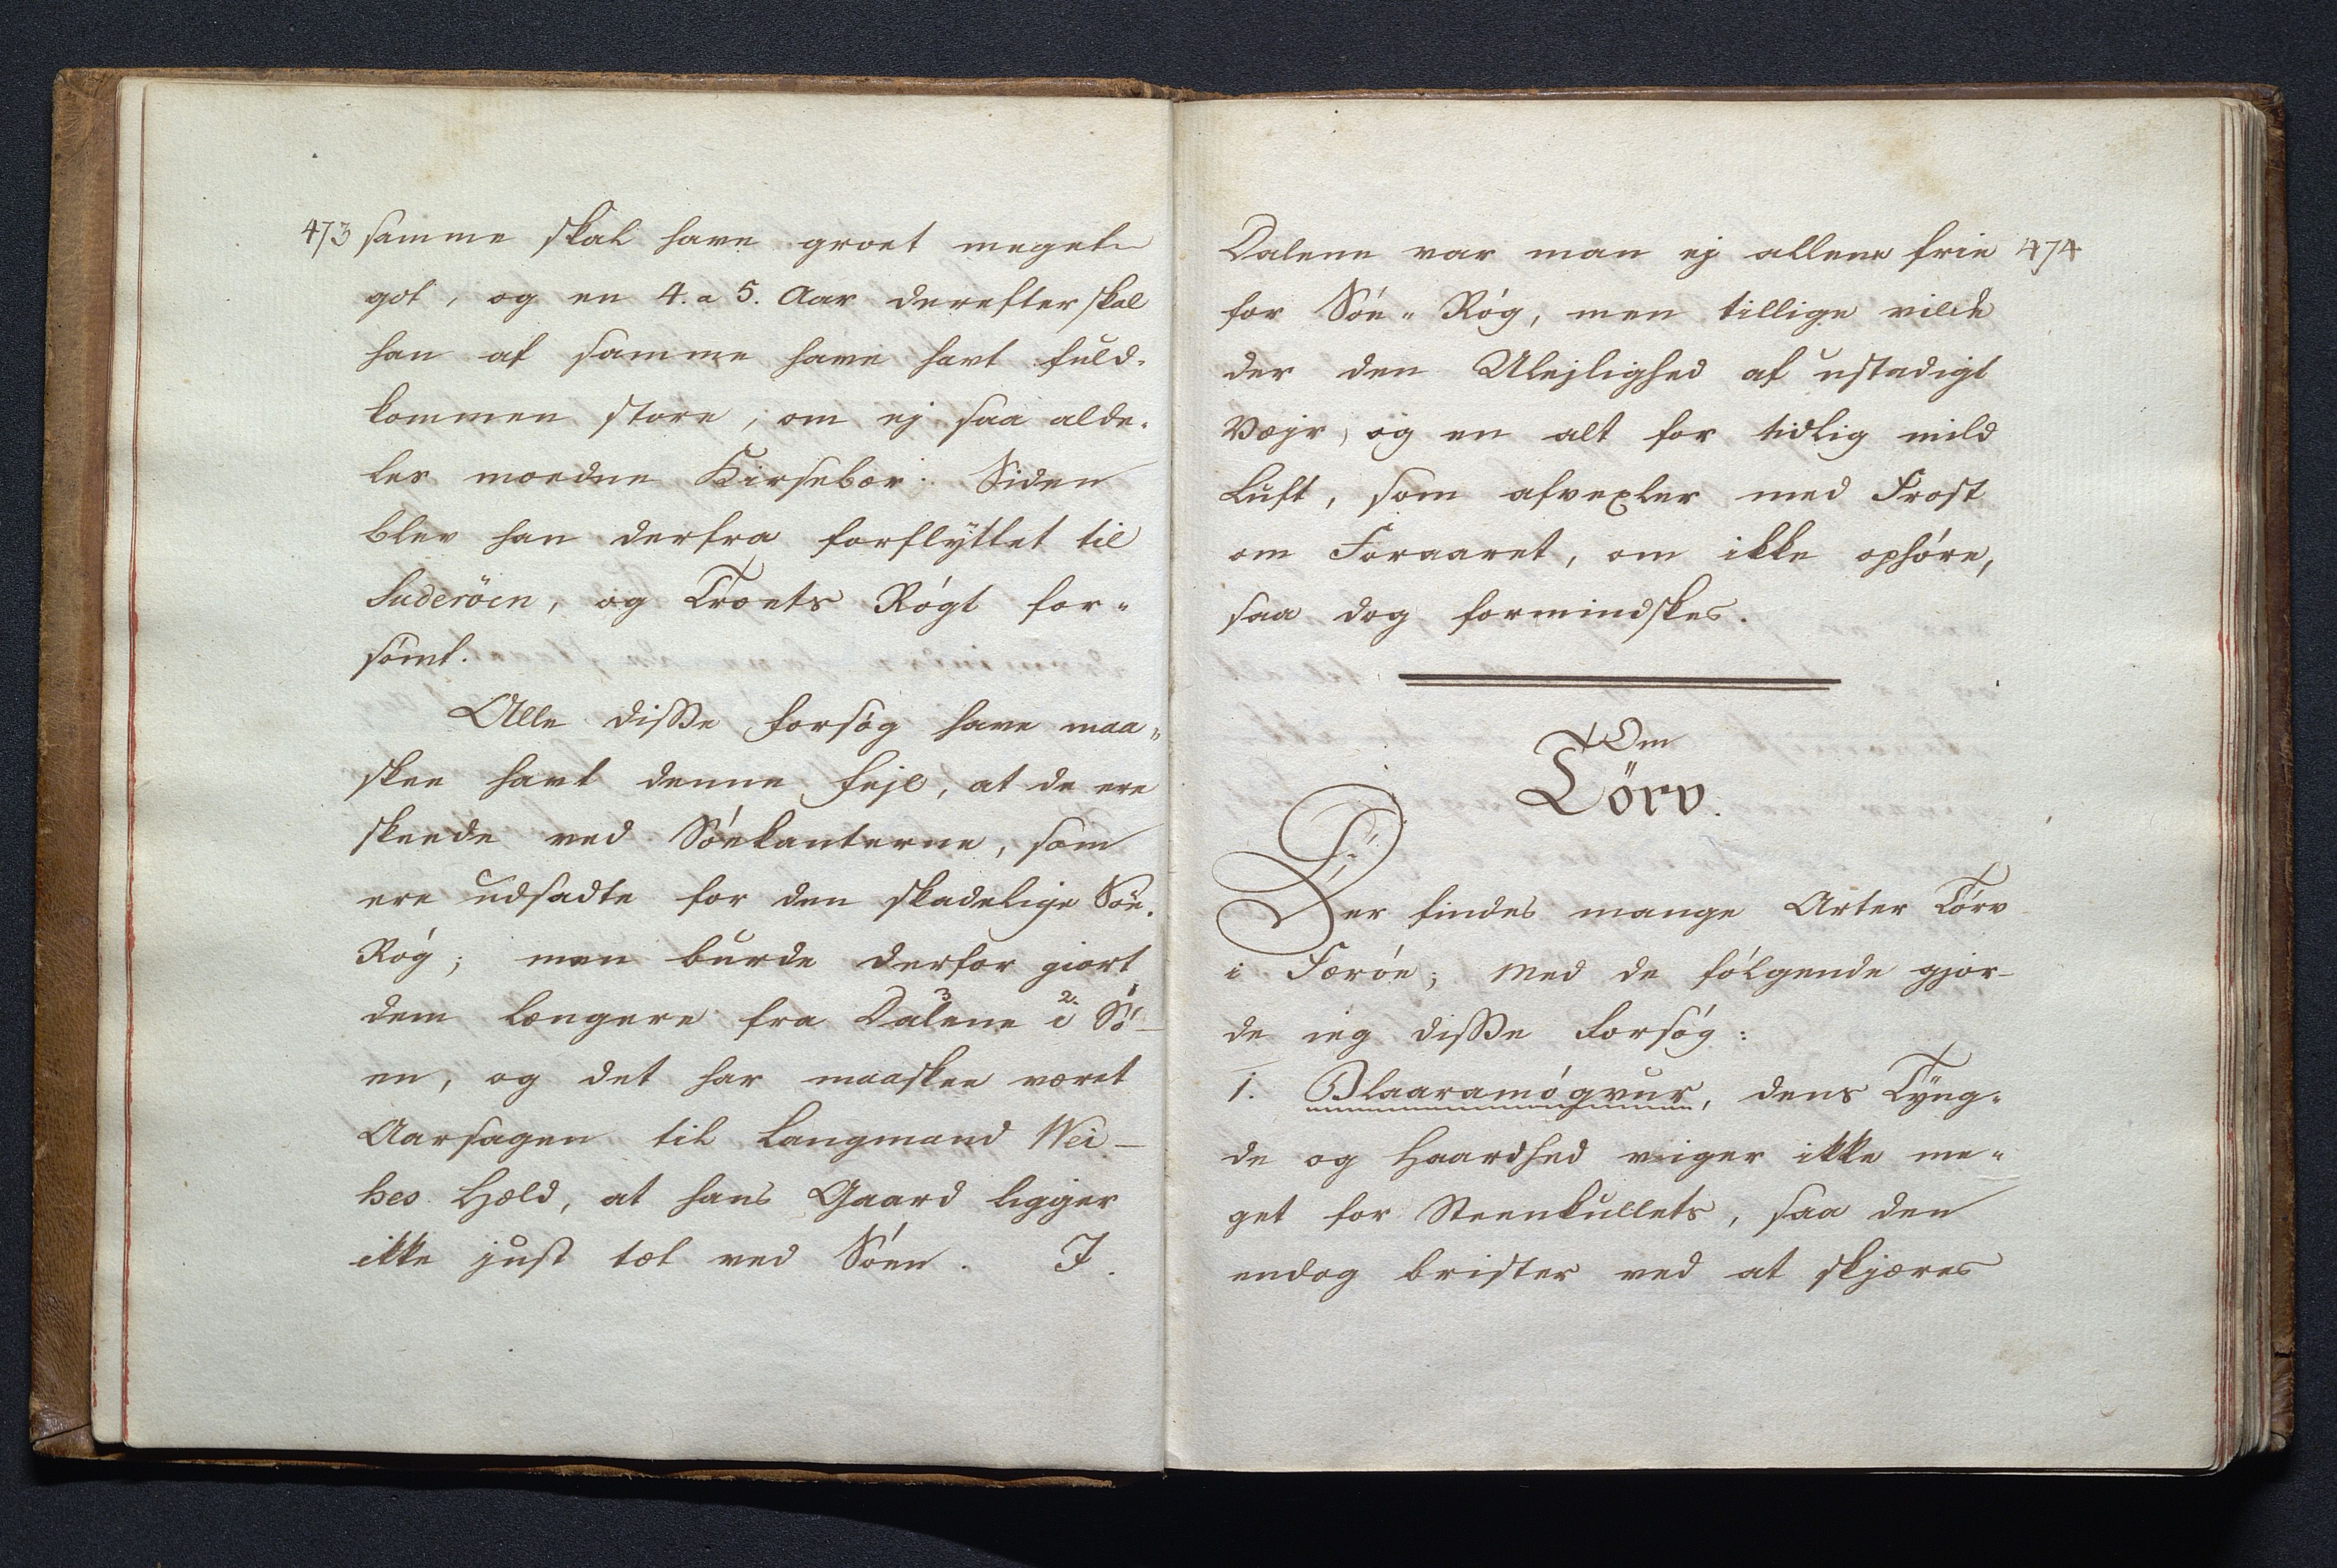 473 samme skal have groet meget
got, og en 4. a 5. Aar derefter skal
han af samme have havt fuld-
kommen store, om ej saa alde-
les moedne Kirsebær. Siden
blev han derfra forflyttet til
Suderöen, og Træets Røgt for-
sømt.
Alle disse Forsøg have maa-
skee havt denne Fejl, at de ere
skeede ved Søekanterne, som
ere udsadte for den skadelige Søe-
Røg; man burde derfor giort
dem længere fra Dalene 3 i 2. Sø-
en, og det har maaskee været
Aarsagen til Langmand Wei-
hes Held, at hans Gaard ligger
ikke just tæt ved Søen. I
Dalene var man ej allene frie 474
for Søe-Røg, men tillige vilde
der den Ulejlighed af ustadigt
Vejr, og en alt for tidlig mild
Luft, som afvexler med Frost
om Foraaret, om ikke ophøre,
saa dog formindskes.
Om
Törv.
Der findes mange Arter Tørv
i Færøe; med de følgende gjor-
de ieg disse Forsøg:
1. Blaaramógvur, dens Tyng-
de og Haardhed viger ikke me-
get for Steenkullets, saa den
endog brister ved at skjæres